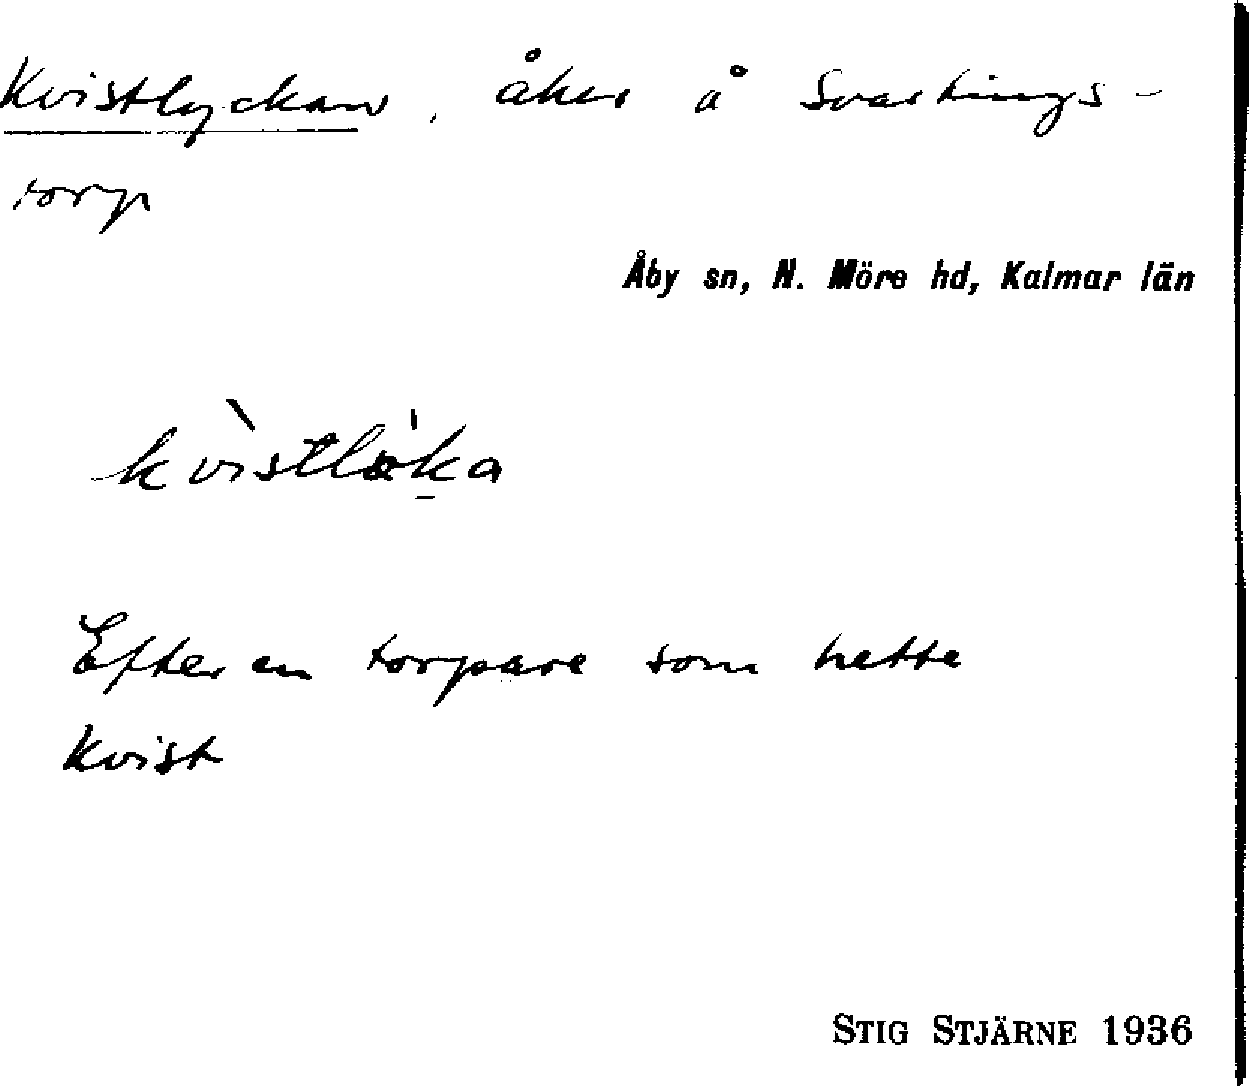 Kvistlyckan, åker å Svartings-
torp
Åby sn, N. Möre hd, Kalmar län
Efter en torpare som hette
Kvist
STIG STJÄRNE 1936